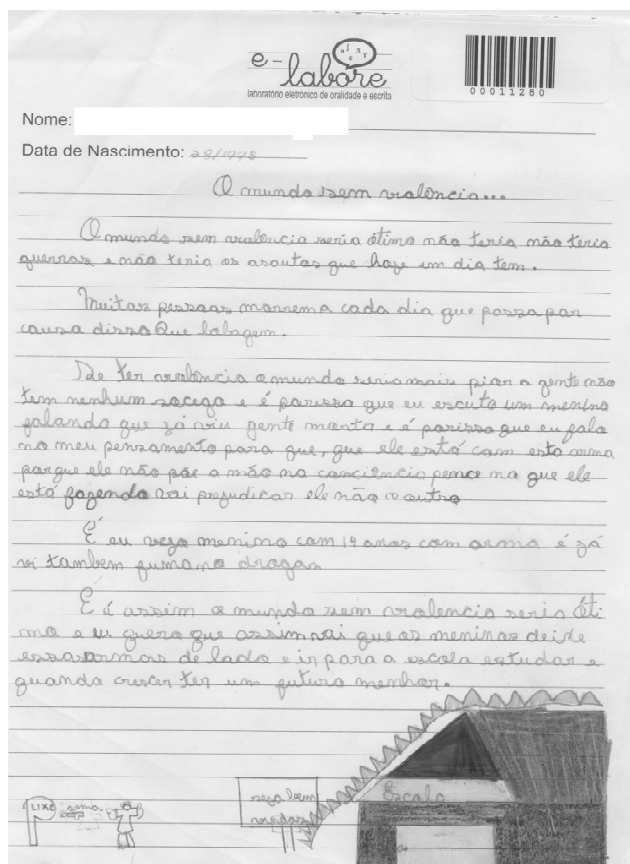 e-labore
laboratório eletrônico de oralidade e escrita
00011280
Nome:
Data de Nascimento: 28/1998
O mundo sem violência...
O mundo sem violência seria ótimo não teria não teria
guerras e não teria os asautos que hoje em dia tem.
Muitas pessoas morrem a cada dia que passa por
causa disso Que
Se ter violência o mundo seria mais pior a gente não
tem nenhum socego e é porisso que eu escuto um menino
falando que zá viu gente morta e é porisso que eu falo
no meu pensamento para que, que ele está com esta arma
porque ele não põe a mão na conciência pence no que ele
está fazendo vai prejudicar ele não o outro
E eu vego menino com 14 anos com arma é zá
vi tambem fumano drogas
E é assim o mundo sem violencia seria óti
mo e eu quero que assim vai que os meninos deide
essas armas de lado e ir para a escola estudar e
quando crescer ter um futuro menhor.
LIXO arma
seza bem
vindos
Escola